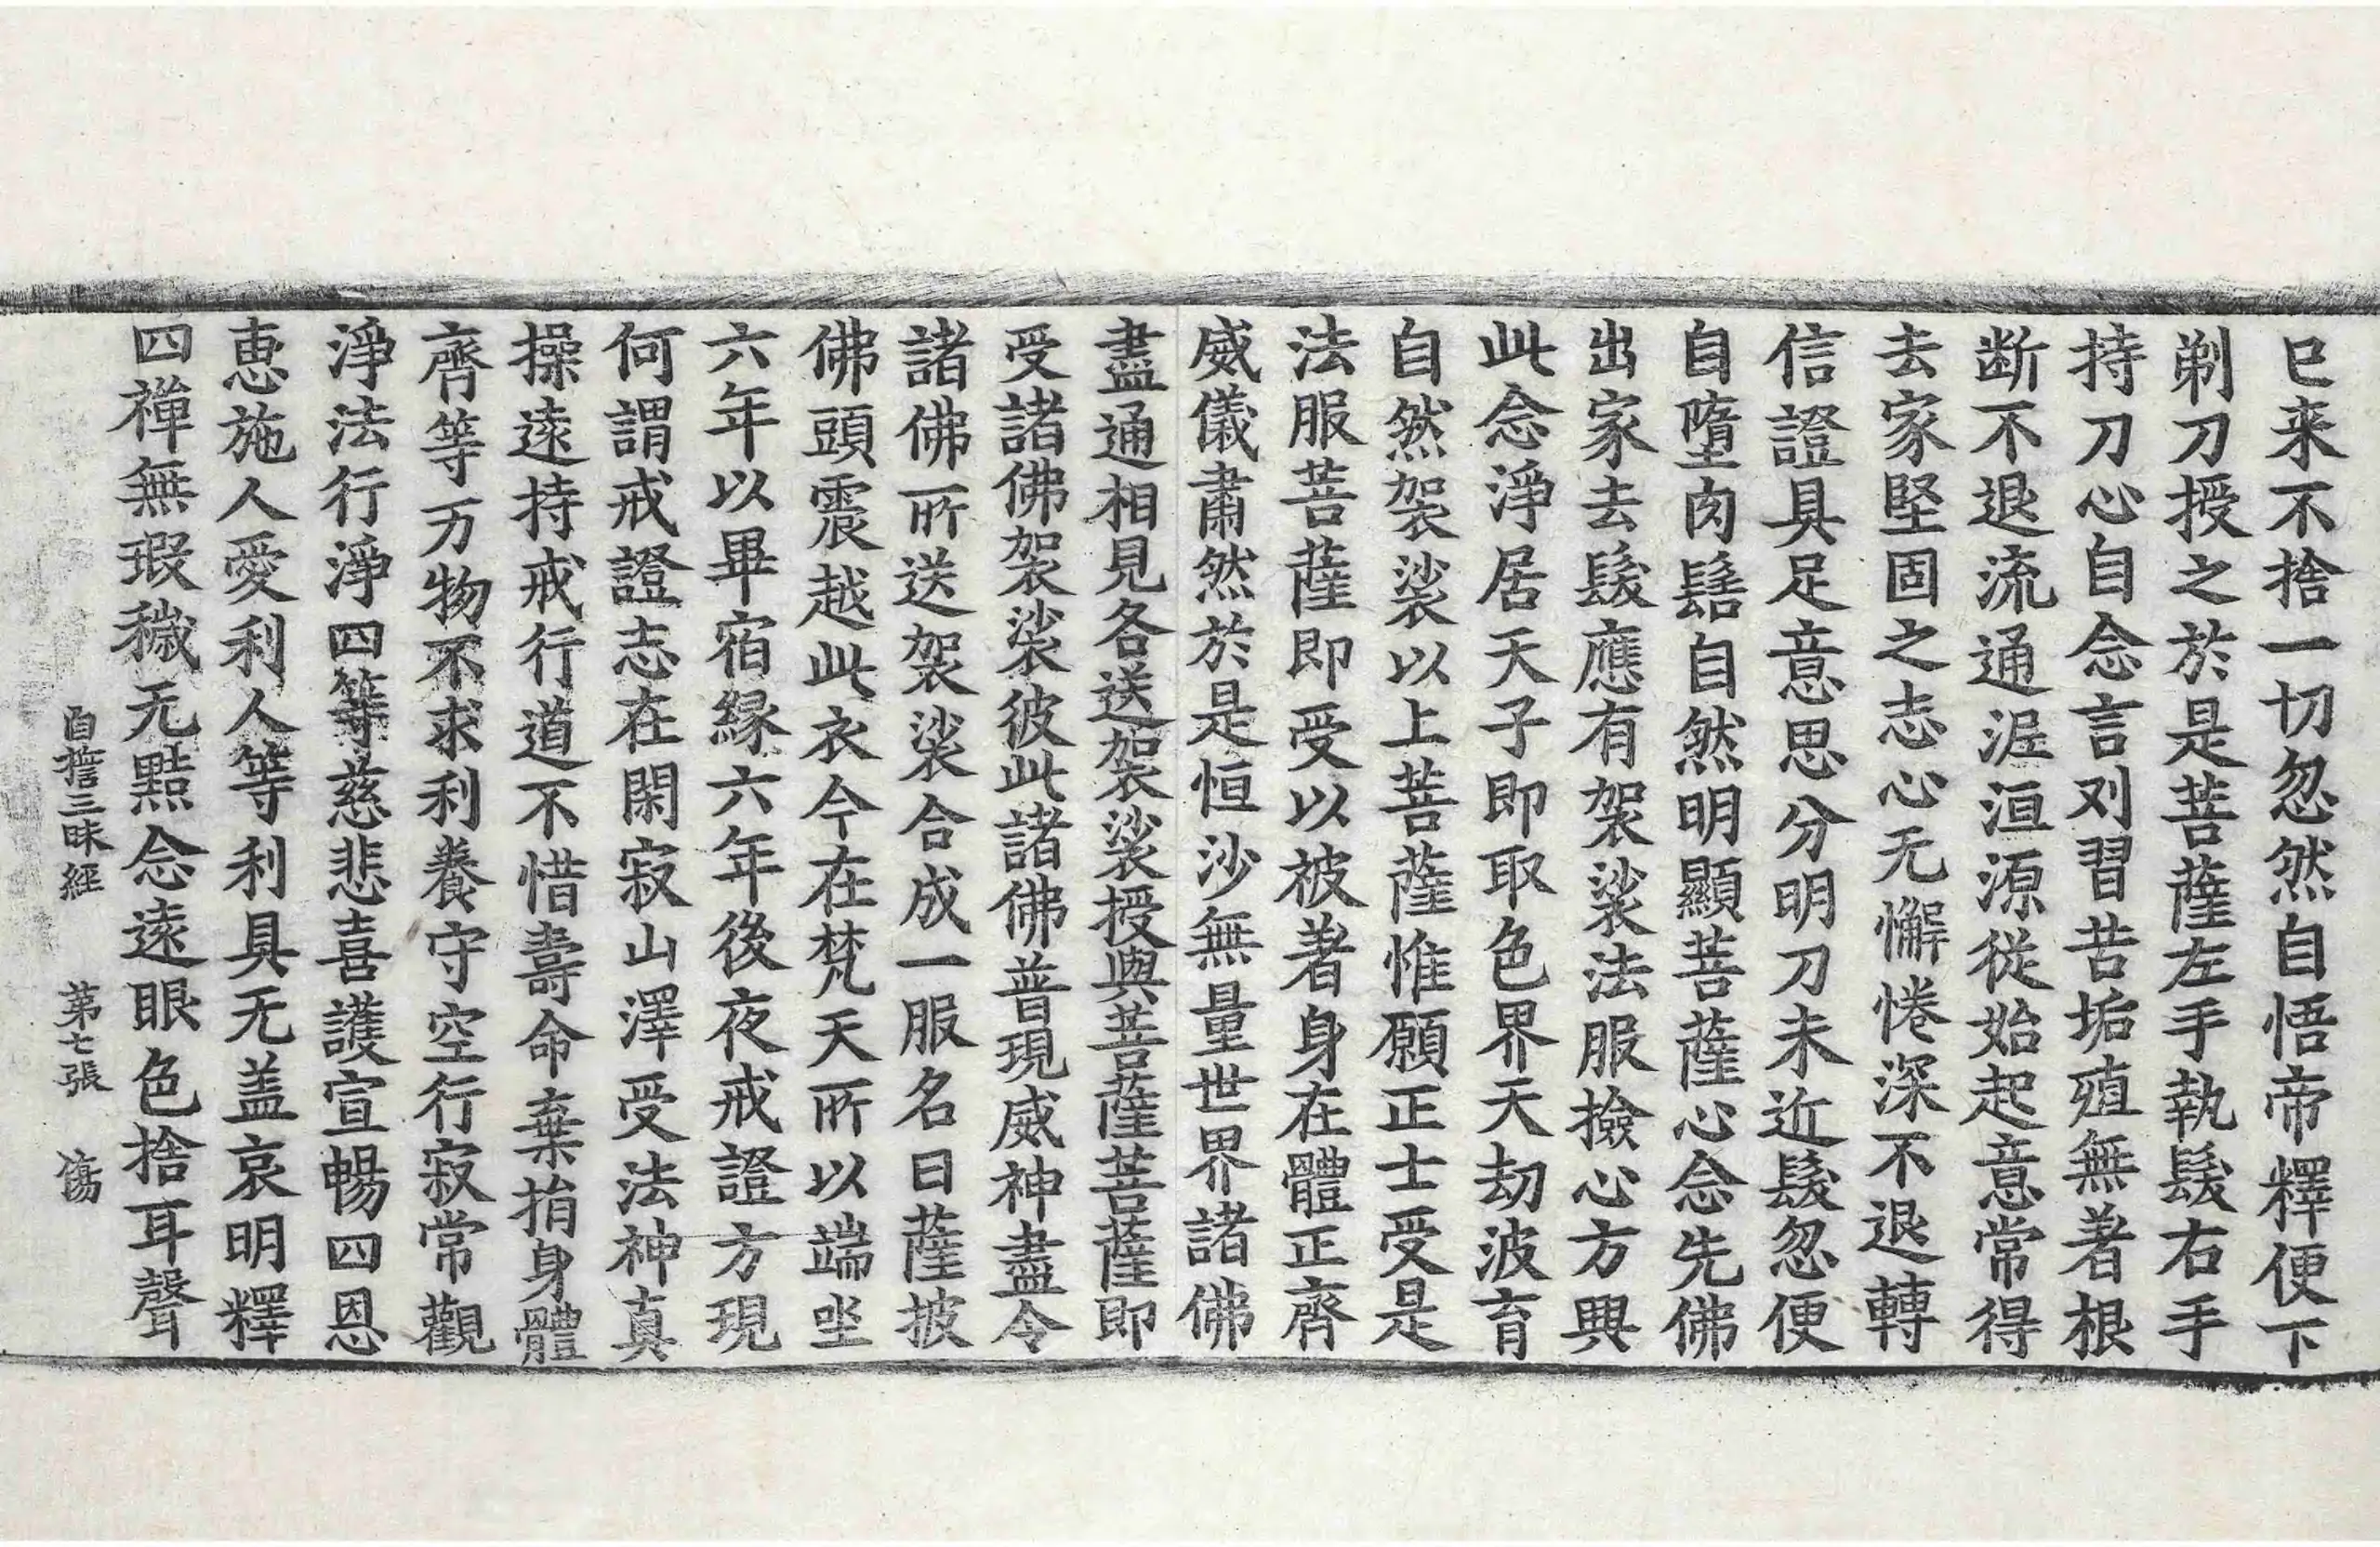 已来不捨一切忽然自悟帝釋便下
剃刀授之於是菩薩左手執髮右手
持刀心自念言刈習苦垢殖無著根
断不退流通泥洹源從始起意常得
去家堅固之志心无懈惓深不退轉
信證具足意思分明刀未近髮忽便
自墮肉髻自然明顯菩薩心念先佛
出家去髮應有袈裟法服撿心方興
此念淨居天子即取色界天劫波育
自然袈裟以上菩薩惟願正士受是
法服菩薩即受以被著身在體正齊
威儀肅然於是恒沙無量世界諸佛
盡通相見各送袈裟授與菩薩菩薩即
受諸佛袈裟彼此諸佛普現威神盡令
諸佛所送袈裟合成一服名曰薩披
佛頭震越此衣今在梵天所以端坐
六年以畢宿緣六年後夜戒證方現
何謂戒證志在閑寂山澤受法神真
操遠持戒行道不惜壽命棄捐身體
齊等万物不求利養守空行寂常觀
淨法行淨四等慈悲喜護宣暢四恩
惠施人愛利人等利具无盖哀明釋
四禪無瑕穢无點念遠眼色捨耳聲
自誓三昧經 第七張 傷